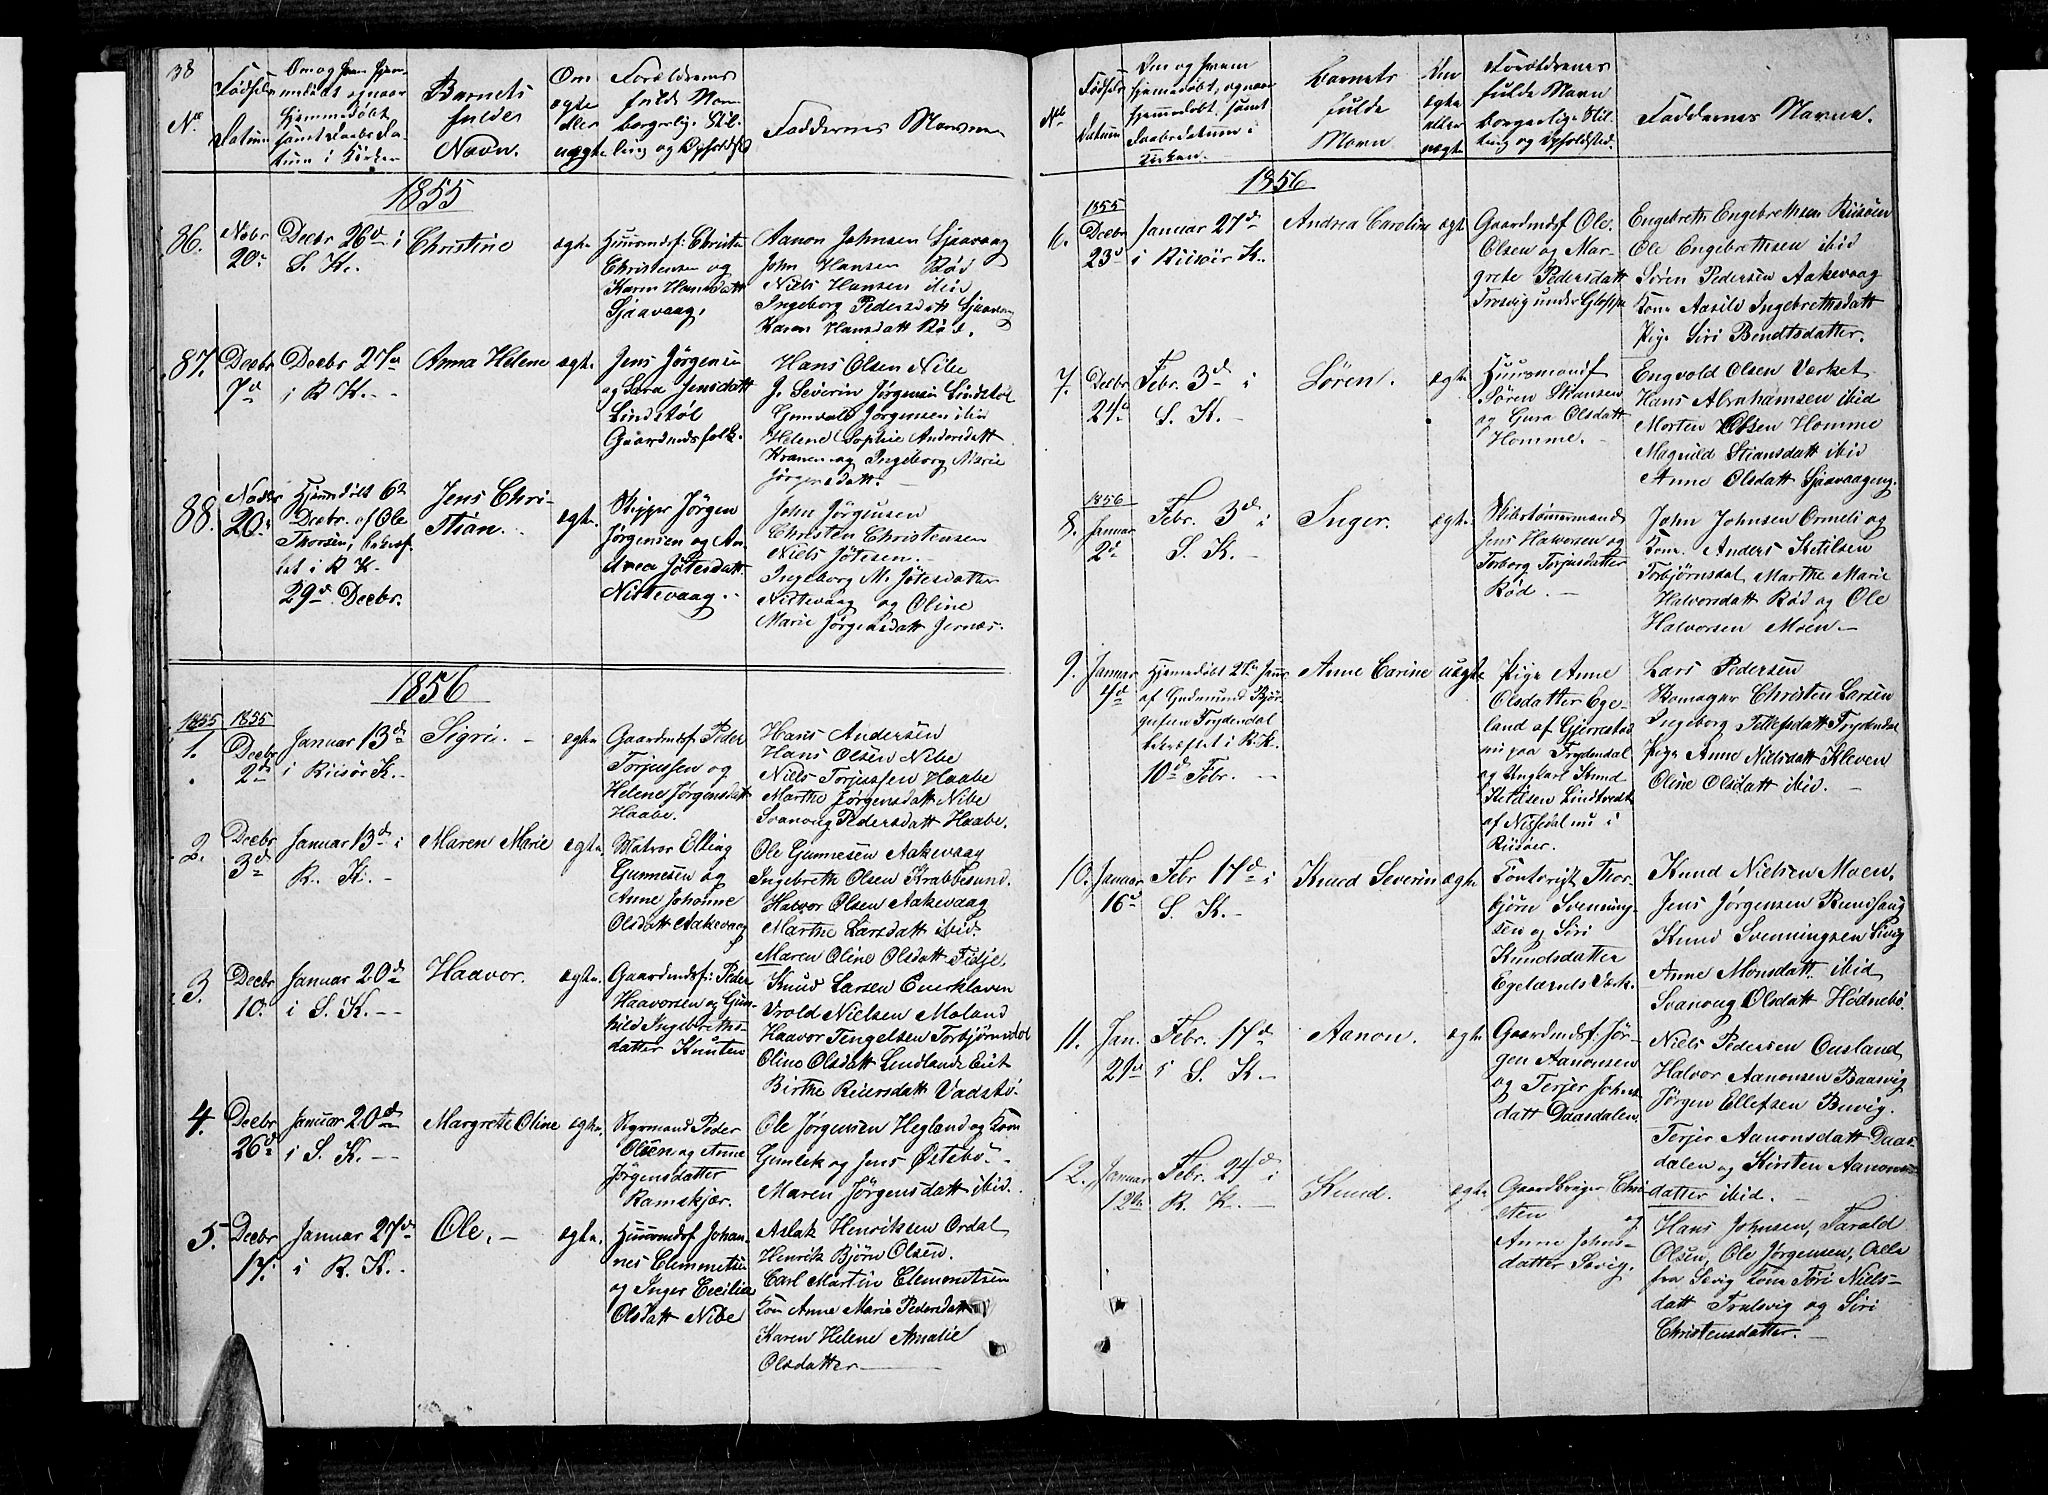 38
No
Fødsels
Datum
Om og hvem hjem-
medøbt og naar
hjemmedøbt
samt Daabs Da-
tum i Kirken
Barnets
fulde
Navn.
Om
ægte
eller
uægte
Forældrenes
fulde Navn
borgerlig Stil-
ling og Opholdsted
Faddernes Navne
1855
86.
Nobr
20de
Decbr 26d i
S. K.
Christine
ægte
Huusmdsf: Christen
Christensen og
Karen Hansdatt
Sjaavaag.
Aanon Johnsen Sjaavaag
John Hansen Rød
Niels Hansen ibid
Ingeborg Pedersdatt Sjaavaag
Karen Hansdatt Rød.
87.
Decbr
7d
Decbr 27de
i R K. -
Anna Helene
ægte.
Jens Jørgensen
og Sara Jensdatt
Lindstøl
Gaardmdsfolk.
Hans Olsen Nibe
J. Severin Jørgensen Lindstøl
Gunvald Jørgensen ibid
Helene Sophie Andersdatt
Kranen og Ingeborg Marie
Jørgensdatt.
88.
Nover
20de
Hjemdøbt 6te
Decbr. af Ole
Thorsen, bekræf-
tet i R K.
29d Decbr.
Jens Chri-
stian.
ægte.
Skipper Jørgen
Jørgensen og An-
drea Jøtesdatt.
Nistevaag.
John Jørgensen
Christen Christensen
Niels Jøtesen
Ingeborg M. Jøtesdatter
Nistevaag og Oline
Marie Jørgensdatt Jernæs.
1856
1855
1855
1.
Decbr
2de
Januar 13d
i Riisør K.
Sigri. -
ægte
Gaardmdsf Peder
Torjussen og
Helene Jørgensdatt
Haabe.
Hans Andersen
Hans Olsen Nibe
Niels Torjussen Haabe
Marthe Jørgensdatt Nibe
Svanaug Pedersdatt Haabe.
2.
Decbr
3d
Januar 13d i
R. K. -
Maren Marie
ægte.
Matros Elling
Gunnesen og
Anne Johanne
Olsdatt Aakevaag
Ole Gunnesen Aakevaag
Ingebreth Olsen Krabbesund.
Halvor Olsen Aakevaag
Marthe Larsdatt ibid.
Maren Oline Olsdatt Fidje.
3.
Decbr
10.
Januar 20d
i S. K. -
Haavor.
ægte.
Gaardmdsf: Peder
Haavorsen og Gun-
hild Ingebreths-
datter Knuten
Knud Larsen Everkleven
Vrold Nielsen Moland
Haavor Tengelsen Torbjørnsdal
Oline Olsdatt Lindlands Eiet
Birthe Reiersdatt Vadstø.
4.
Decbr
26d
Januar 20d
i S. K. -
Margrete Oline
ægte.
Peder
Olsen og Anne
Jørgensdatter
Ramskjær.
Ole Jørgensen Hegland og Kone
Gimlek og Jens Østebø.
Maren Jørgensdatt ibid.
5.
Decbr
17.
Januar 27d
i R. K. -
Ole. -
ægte.
Huusmdsf Johan-
nes Clemmetsen
og Inger Cecilia
Olsdatt Nibe
Aslak Henriksen Ordal
Henrik Bjørn Olsen.
Carl Martin Clemmetsen
Kone Anne Marie Pedersdatt
Karen Helene Amalie
Olsdatter
No
Fødsels
Datum
Om og hvem
hjemmedøbt, og naar
hjemmedøbt, samt
Daabsdatum i
Kirken.
Barnets
fulde
Navn
Om
ægte
eller
uægte
Forældrenes
fulde Navn
borgerlige Stil-
ling og Opholdsted.
Faddernes Navne.
1856
1855
6.
Decbr
23d
Januar 27d
i Riisør K.
Andrea Caroline
ægte
Gaardmdsf. Ole
Olsen og Mar-
grete Pedersdatt
Trosvig under Gloppe
Engebreth Engebrethsen Riisøen
Ole Engebrethsen ibid
Søren Pedersen Aakevaag
Kone Aasild Ingebrethsdatt
Pige Siri Bendtsdatter.
7.
Decbr
24d
Febr. 3d i
S. K. -
Søren.
ægte
Huusmandsf
Søren Stiansen
og Gura Olsdatt
Homme.
Engvold Olsen Værket
Hans Abrahamsen ibid
Morten Olsen Homme
Magnild Stiansdatt ibid
Anne Olsdatt Sjaavaageng.
1856
8.
Januar
2d
Febr. 3d i
S. K. -
Inger.
ægte.
Skibstømmermand
Jens Halvorsen og
Torborg Torjusdatter
Rød. -
John Johnsen Ormeli og
Kone. Anders Ketilsen
Torbjørnsdal, Marthe Marie
Halvorsdatt Rød og Ole
Halvorsen Moen. -
9.
Januar
Hjemmedøbt
af Gudmund Bjør-
gusen Frydendal
bekræftet i R. K.
10d Febr. -
Anne Carine
uægte
Pige Anne
Olsdatter Ege-
land af Gjerrestad
nu paa Frydendal
og Ungkarl Knud
Ketilsen Lindtvedt
af Nissedal nu i
Riisøer.
Lars Pedersen
Bomager Christen Larsen
Ingeborg Tellefsdatt Frydendal
Pige Anne Nielsdatt Kleven
Oline Olsdatt ibid. -
10.
Januar
16d
Febr 17d i
S. K. -
Knud Severin
ægte
Thor-
bjørn Svenning-
sen og Siri
Knudsdatter
Egelands Værk.
Knud Nielsen Moen,
Jens Jørgensen Rundhaug
Knud Svenningsen Sivig
Anne Monsdatt. ibid
Svanaug Olsdatt Hødnebø.
11.
Jan.
29de
Febr. 17d
i S. K. -
Aanon.
ægte
Gaardmdsf. Jør-
gen Aanonsen
og Terjer Johns-
datt Daasdalen.
Niels Pedersen Ousland
Halvor Aanonsen Baasvig
Jørgen Ellefsen Buvig.
Terjer Aanonsdatt Daas-
dalen og Kirsten Aanons-
datter ibid. -
12.
Januar
12te
Febr. 24d i
R. K. -
Knud.
ægte
Gaardbruger Chri-
sten og
Anne Johns-
datter Sevig.
Hans Johnsen, Tarald
Olsen, Ole Jørgensen, Alle
fra Sevig Kone Siri Niels-
datt Trulsvig og Siri
Christensdatter. -